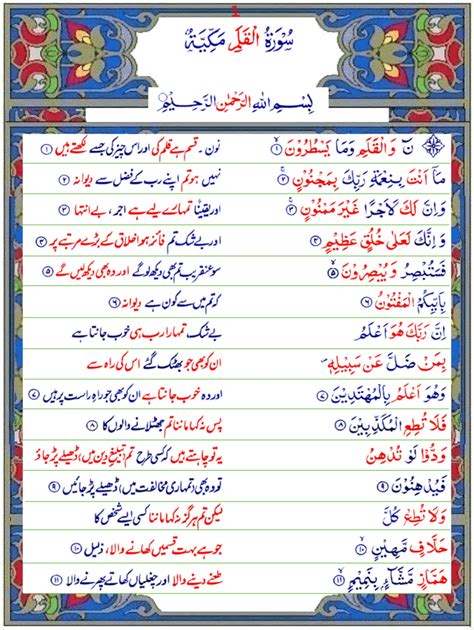 1
سُوْرَةُ الْقَلَمِ مَكِّيَّةٌ
بِسْمِ اللهِ الرَّحْمٰنِ الرَّحِيْمِ
نٓ وَالْقَلَمِ وَمَا يَسْطُرُوْنَ ۙ﴿۱﴾ نون۔ قسم ہے قلم کی اور اس چیز کی جسے لکھتے ہیں ﴿۱﴾
مَاۤ اَنْتَ بِنِعْمَةِ رَبِّكَ بِمَجْنُوْنٍ ۚ﴿۲﴾ نہیں ہو تم اپنے رب کے فضل سے دیوانہ ﴿۲﴾
وَاِنَّ لَكَ لَاَجْرًا غَيْرَ مَمْنُوْنٍ ۚ﴿۳﴾ اور یقیناً تمہارے لیے ہے اجر، بے انتہا ﴿۳﴾
وَاِنَّكَ لَعَلٰى خُلُقٍ عَظِيْمٍ ﴿۴﴾ اور بے شک تم فائز ہو اخلاق کے بڑے مرتبے پر ﴿۴﴾
فَسَتُبْصِرُ وَيُبْصِرُوْنَ ۙ﴿۵﴾ سو عنقریب تم بھی دیکھ لوگے اور وہ بھی دیکھ لیں گے ﴿۵﴾
بِاَيِّكُمُ الْمَفْتُوْنُ ﴿۶﴾ کہ تم میں سے کون ہے دیوانہ ﴿۶﴾
اِنَّ رَبَّكَ هُوَ اَعْلَمُ بے شک تمہارا رب ہی خوب جانتا ہے
بِمَنْ ضَلَّ عَنْ سَبِيْلِهٖ ان کو بھی جو بھٹک گئے اس کی راہ سے
وَهُوَ اَعْلَمُ بِالْمُهْتَدِيْنَ ﴿۷﴾ اور وہ خوب جانتا ہے ان کو بھی جو راہِ راست پر ہیں ﴿۷﴾
فَلَا تُطِعِ الْمُكَذِّبِيْنَ ﴿۸﴾ پس نہ کہا ماننا تم جھٹلانے والوں کا ﴿۸﴾
وَدُّوْا لَوْ تُدْهِنُ یہ تو چاہتے ہیں کہ کسی طرح تم (تبلیغِ دین میں) ڈھیلے پڑ جاؤ
فَيُدْهِنُوْنَ ﴿۹﴾ تو وہ بھی (تمہاری مخالفت میں) ڈھیلے پڑ جائیں ﴿۹﴾
وَلَا تُطِعْ كُلَّ لیکن تم ہرگز نہ کہا ماننا کسی ایسے شخص کا
حَلَّافٍ مَّهِيْنٍ ۙ﴿۱۰﴾ جو ہے بہت قسمیں کھانے والا، ذلیل ﴿۱۰﴾
هَمَّازٍ مَّشَّآءٍۭ بِنَمِيْمٍ ۙ﴿۱۱﴾ طعنے دینے والا اور چغلیاں کھاتے پھرنے والا ﴿۱۱﴾